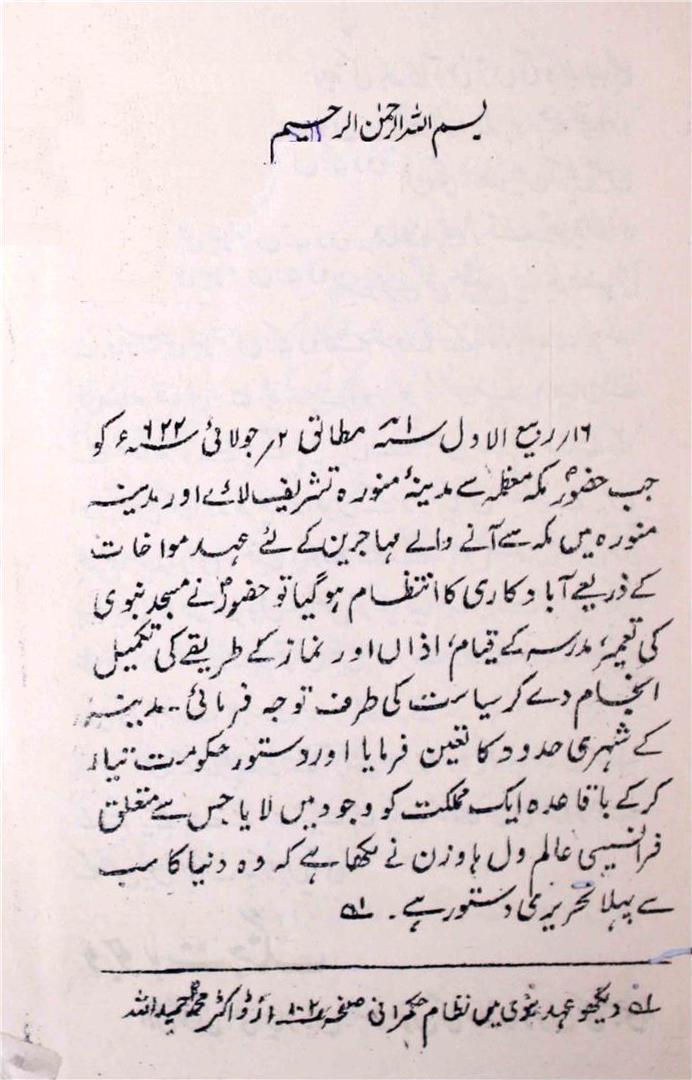 بسم اللہ الرحمٰن الرحیم
۱۶ر ربیع الاول سنہ ۱ھ مطابق ۲ر جولائی سنہ ۶۲۲ء کو
جب حضورؐ مکہ معظمہ سے مدینۂ منورہ تشریف لائے اور مدینہ
منورہ میں مکہ سے آنے والے مہاجرین کے لئے عہد مواخات
کے ذریعے آبادکاری کا انتظام ہوگیا تو حضورؐ نے مسجد نبوی
کی تعمیر، مدرسہ کے قیام، اذاں اور نماز کے طریقے کی تکمیل
انجام دے کر سیاست کی طرف توجہ فرمائی۔ مدینہ
کے شہری حدود کا تعین فرمایا اور دستور حکومت تیار
کرکے باقاعدہ ایک مملکت کو وجود میں لایا جس سے متعلق
فرانسیسی عالم ول ہاوزن نے لکھا ہے کہ وہ دنیا کا سب
سے پہلا تحریری دستور ہے۔ ۱ھ
۱ھ دیکھو عہد نبوی میں نظام حکمرانی صفحہ ۱۰۲ از ڈاکٹر محمد حمید اللہ